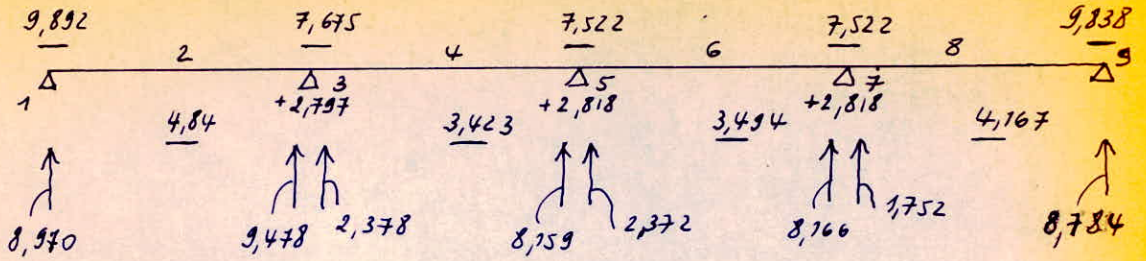 9,892 7,675 7,522 7,522 9,838
2 4 6 8 9
1 3 5 7
+2,797 +2,818 +2,818
4,84 3,423 3,494 4,167
8,970 9,478 2,378 8,159 2,372 8,166 1,752 8,784